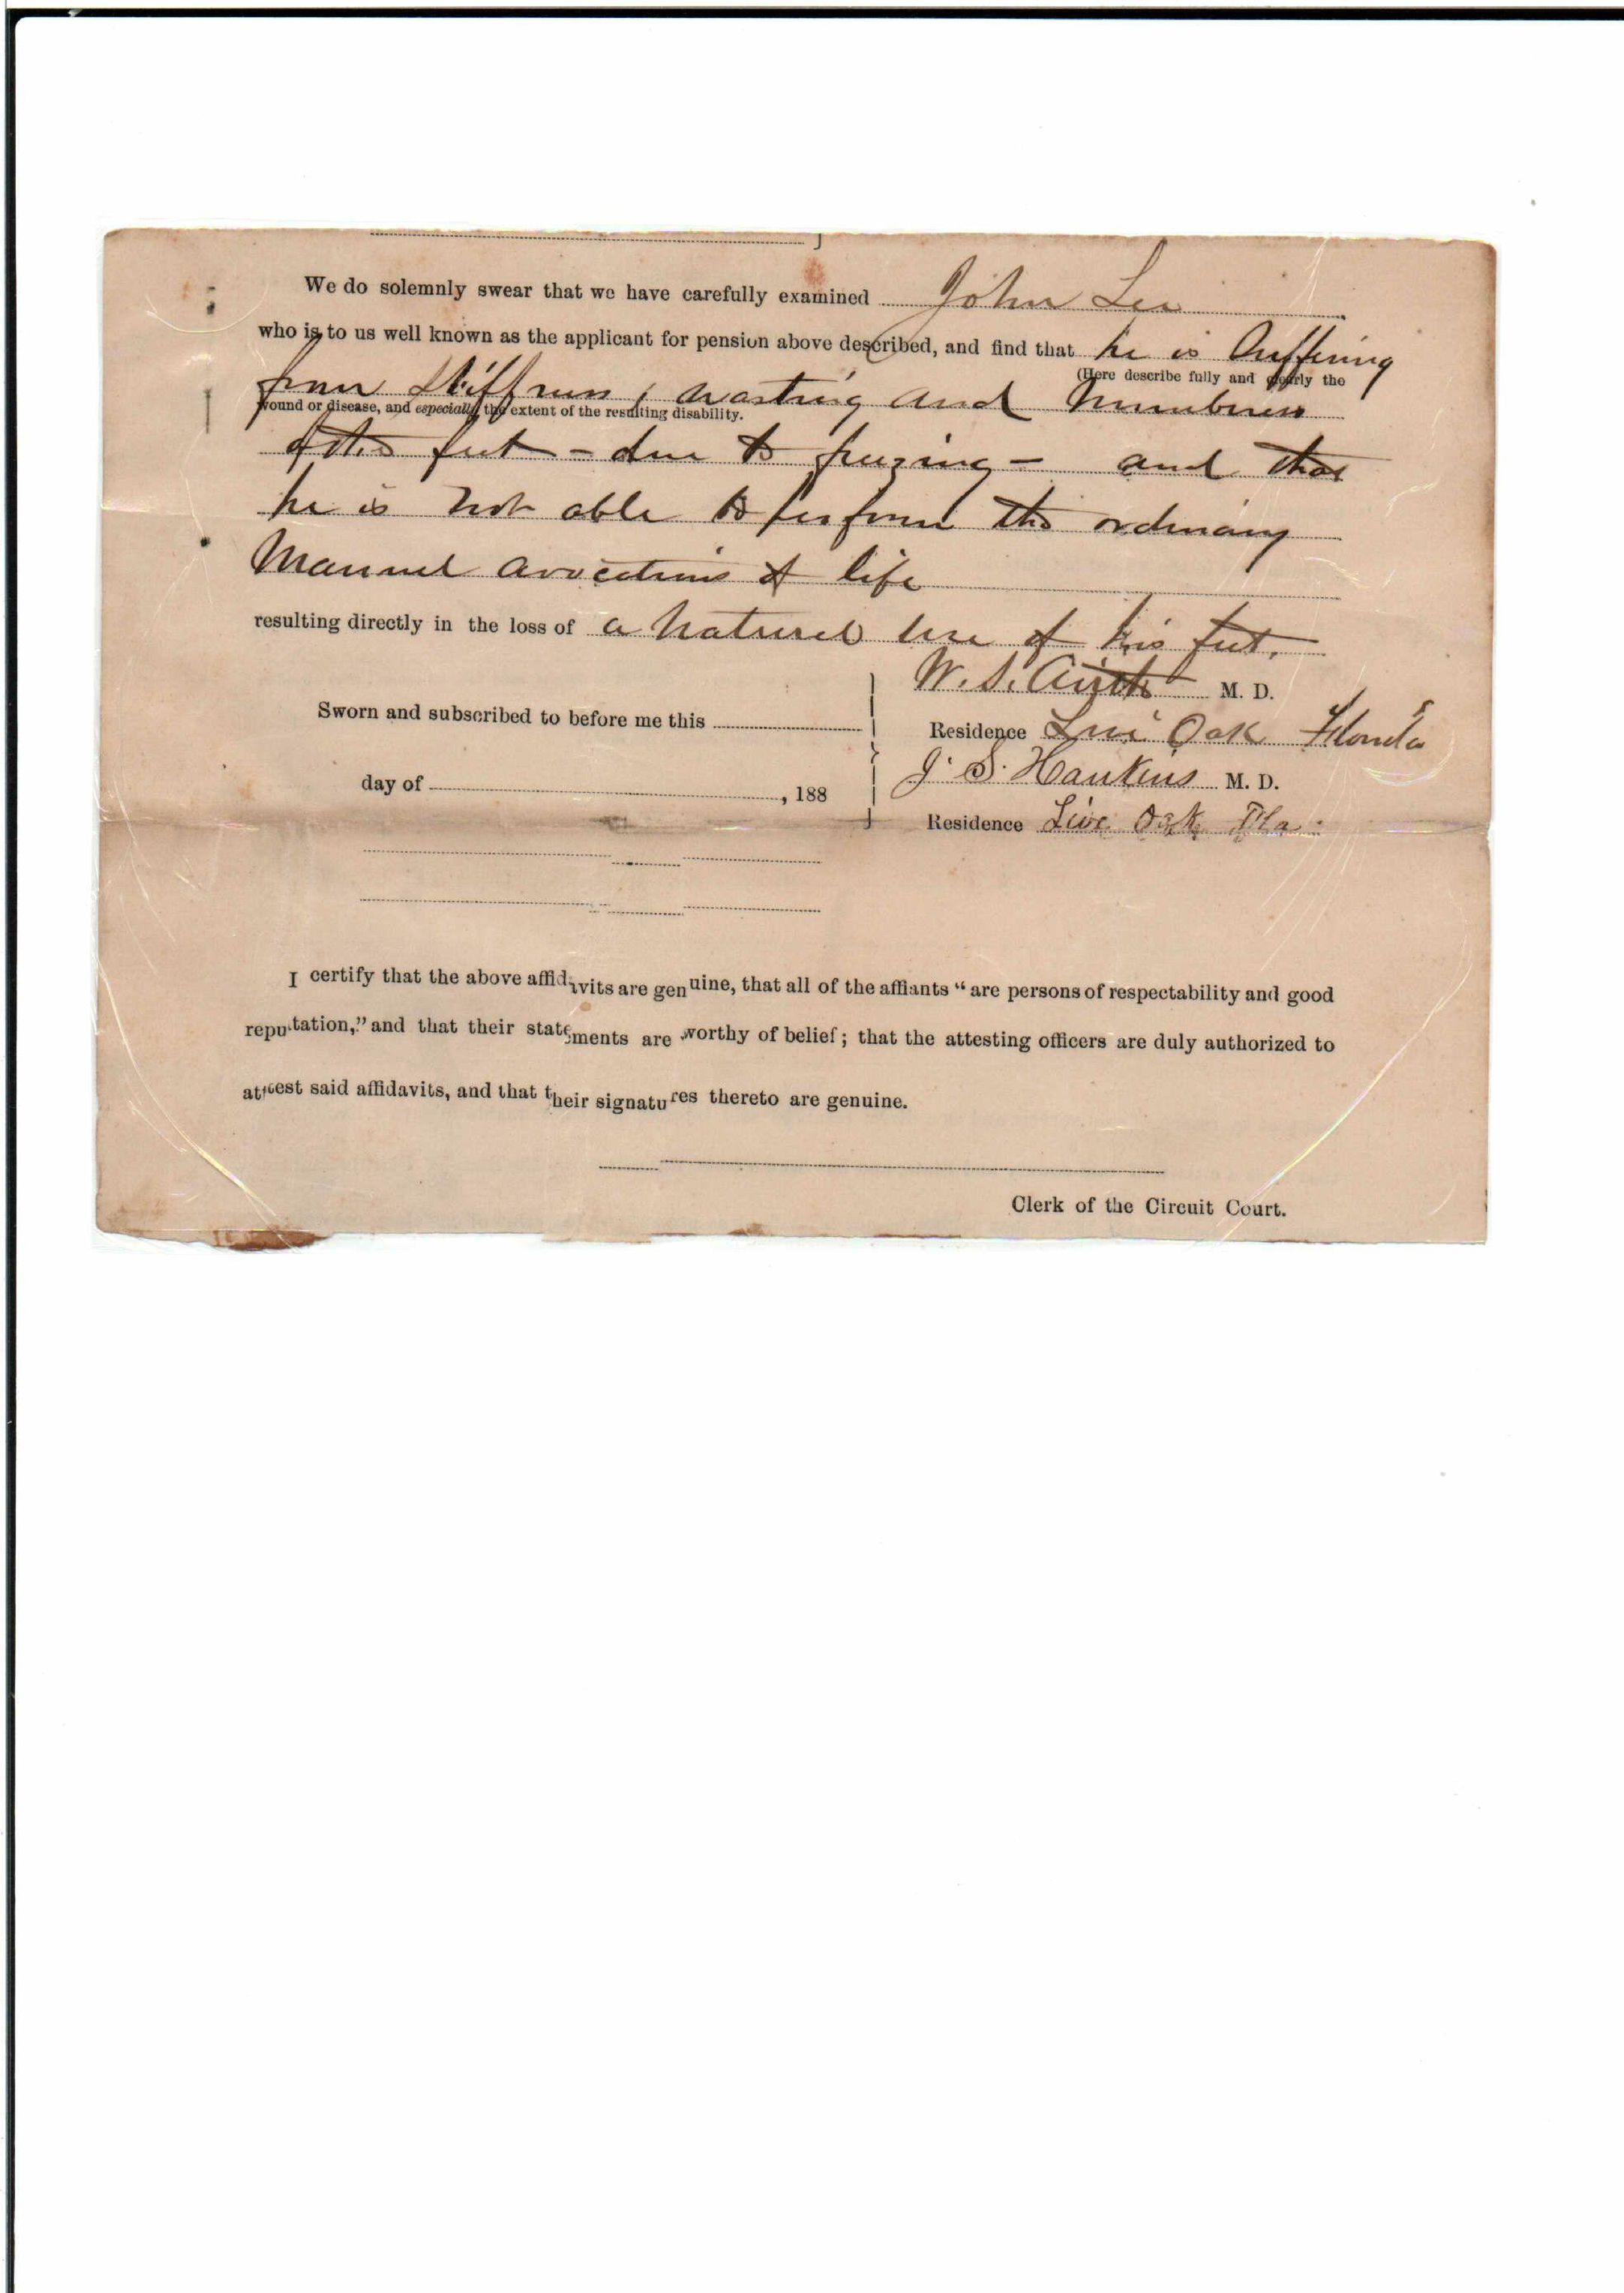 We do solemnly swear that we have carefully examined John Lee
who is to us well known as the applicant for pension above described, and find that he is suffering
(Here describe fully and clearly the
from stiffness, wasting and numbness
wound or disease, and especially the extent of the resulting disability.
of his feet - due to freezing - and that
he is not able to perform the ordinary
Manuel avocations of life
resulting directly in the loss of a natural use of his feet.
W. S. Airth M. D.
Sworn and subscribed to before me this
Residence Live Oak Florida
J. S. Hankins M. D.
day of , 188
Residence Live Oak Fla.
I certify that the above affidavits are genuine, that all of the affiants "are persons of respectability and good
reputation," and that their statements are worthy of belief; that the attesting officers are duly authorized to
attest said affidavits, and that their signatures thereto are genuine.
Clerk of the Circuit Court.